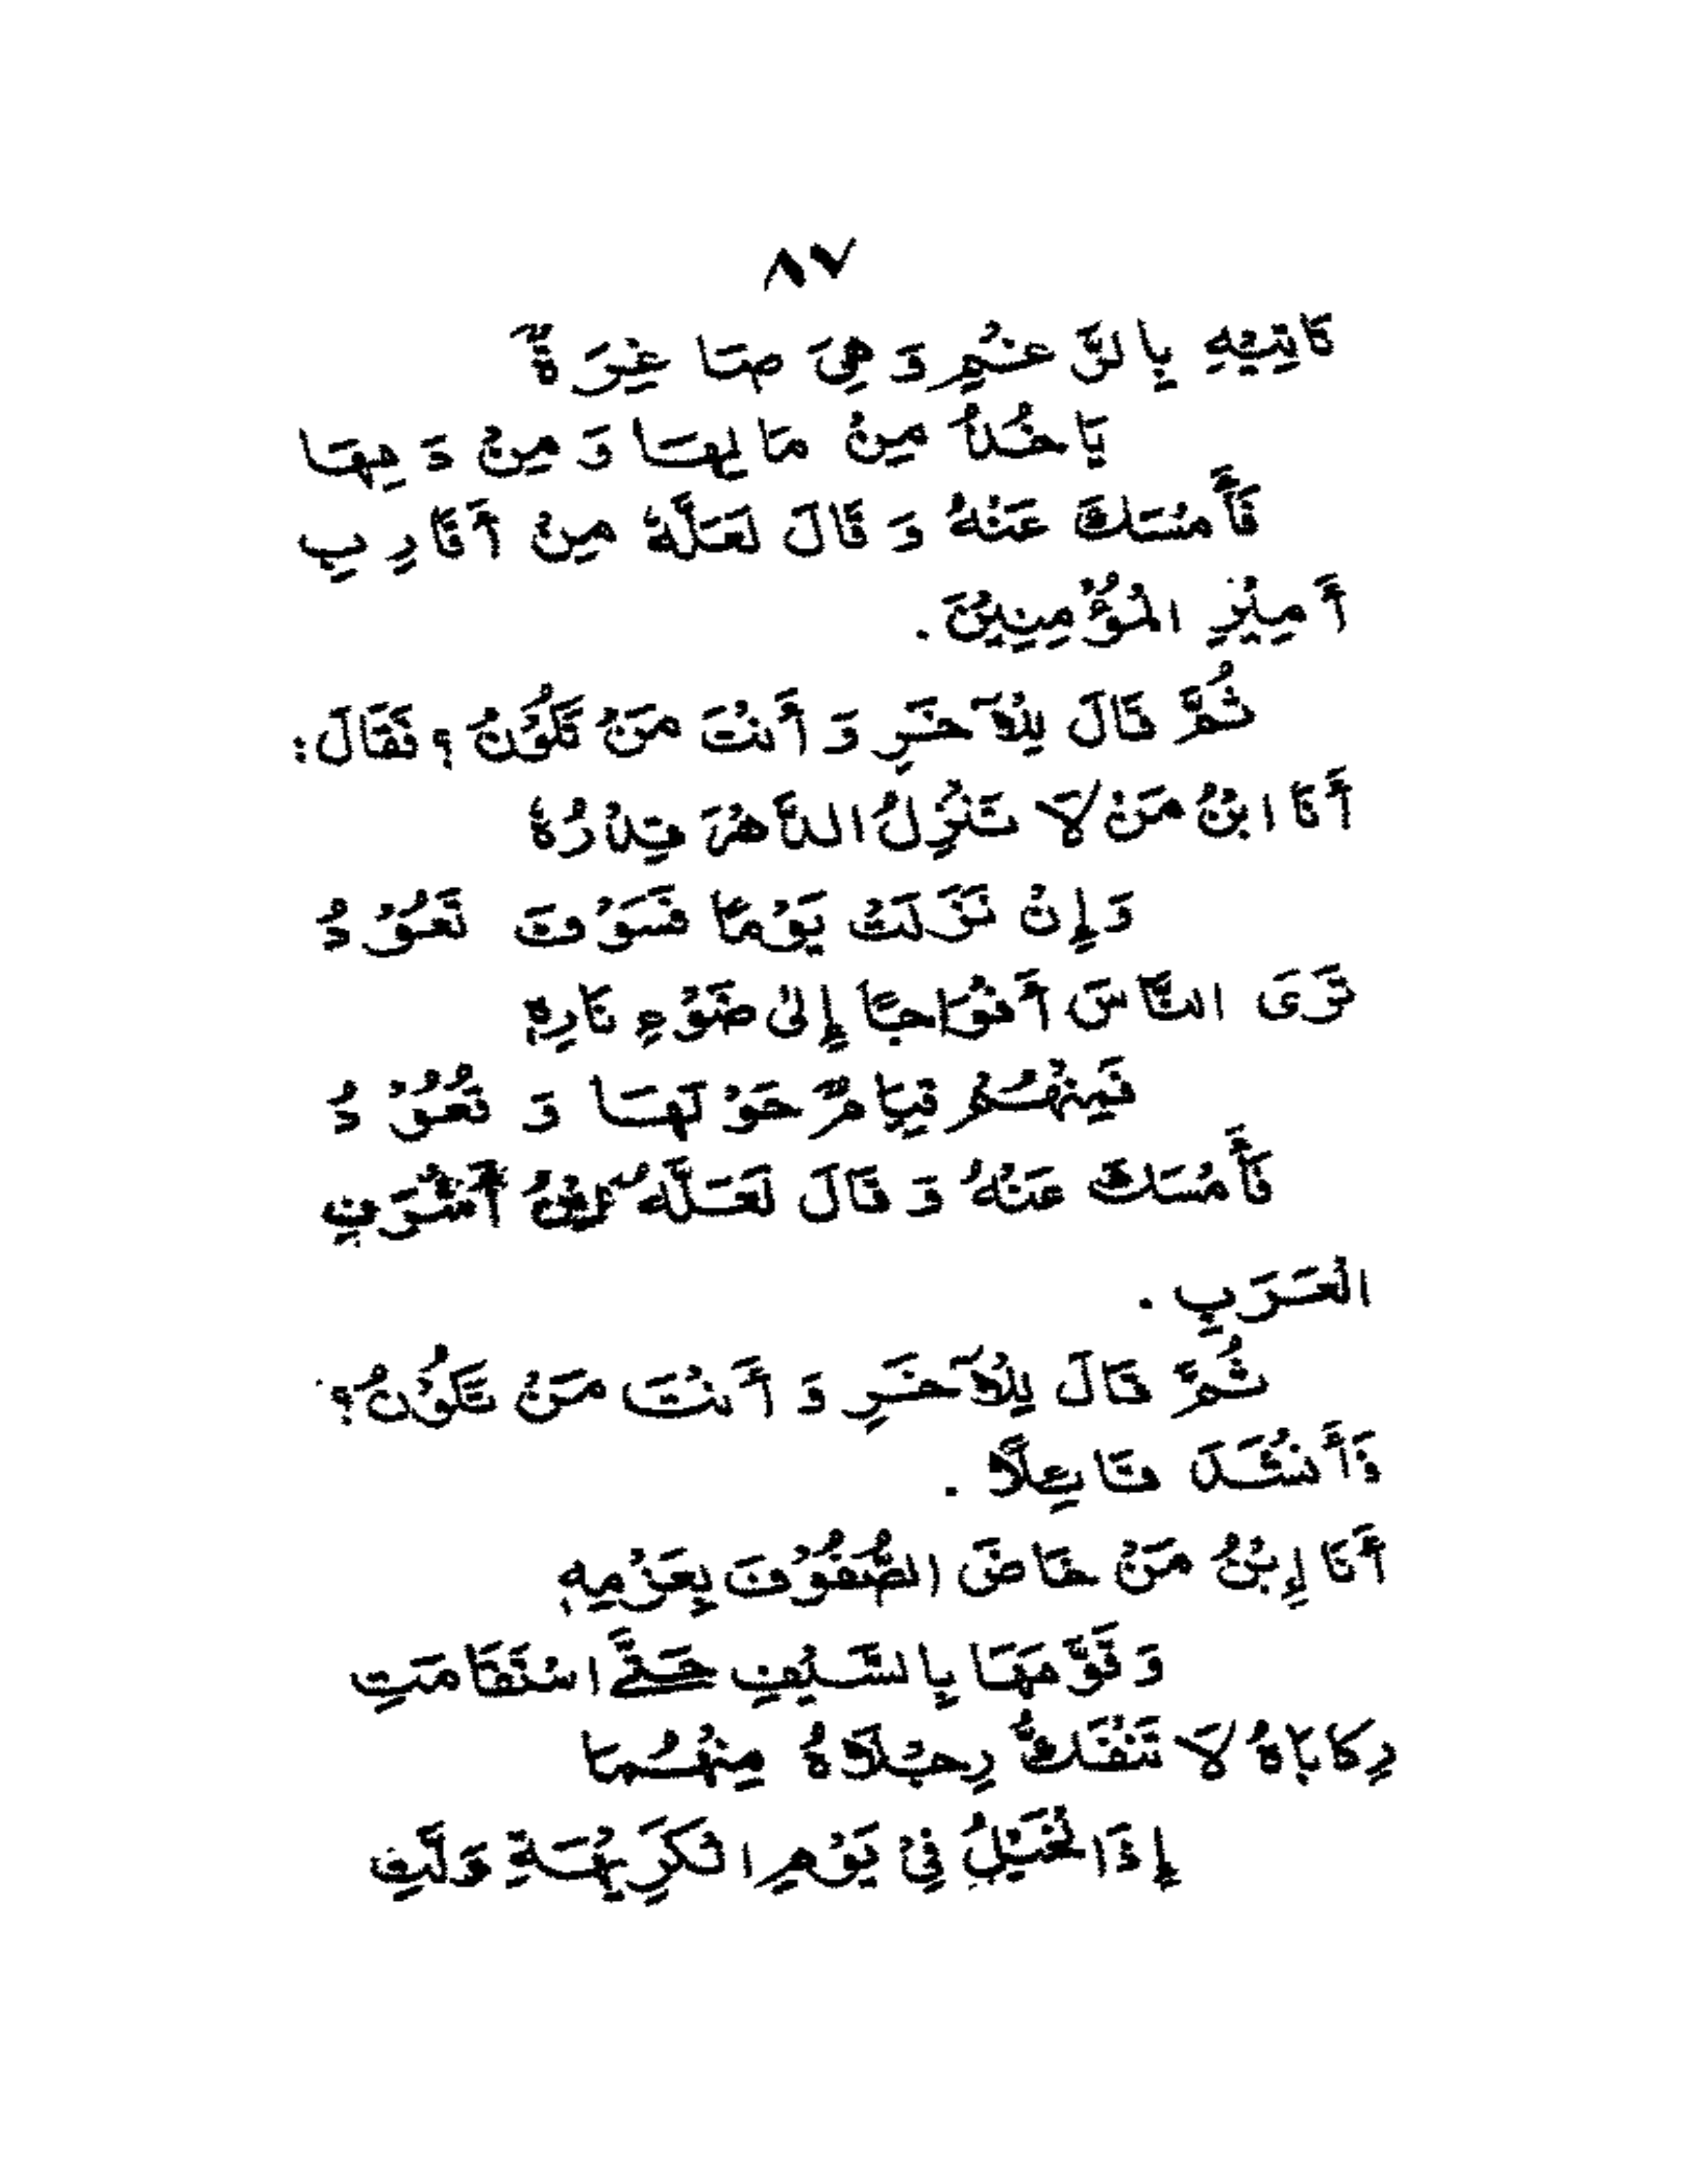 ٨٧
تَأْتِيْهِ بِالرَّغْمِ وَهِيَ صَاغِرَةٌ
يَأْخُذُ مِنْ مَالِهَا وَمِنْ دَمِهَا
فَأَمْسَكَ عَنْهُ وَقَالَ لَعَلَّهُ مِنْ أَقَارِبِ
أَمِيْرِ المُؤْمِنِيْنَ.
ثُمَّ قَالَ لِلْآخَرِ وَأَنْتَ مَنْ تَكُوْنُ؟ فَقَالَ:
أَنَا ابْنُ مَنْ لَا تَنْزِلُ الدَّهْرَ قِدْرُهُ
وَإِنْ نَزَلَتْ يَوْمًا فَسَوْفَ تَعُوْدُ
تَرَى النَّاسَ أَفْوَاجًا إِلَى ضَوْءِ نَارِهِ
فَمِنْهُمْ قِيَامٌ حَوْلَهَا وَقُعُوْدُ
فَأَمْسَكَ عَنْهُ وَقَالَ لَعَلَّهُ ابْنُ أَشْرَفِ
الْعَرَبِ.
ثُمَّ قَالَ لِلْآخَرِ وَأَنْتَ مَنْ تَكُوْنُ؟
فَأَنْشَدَ قَائِلًا.
أَنَا إِبْنُ مَنْ خَاضَ الصُّفُوْفَ بِعَزْمِهِ
وَقَوَّمَهَا بِالسَّيْفِ حَتَّى اسْتَقَامَتِ
رِكَابَاهُ لَا تَنْفَكُّ رِجْلَاهُ مِنْهُمَا
إِذَا الْخَيْلُ فِيْ يَوْمِ الْكَرِيْهَةِ وَلَّتِ